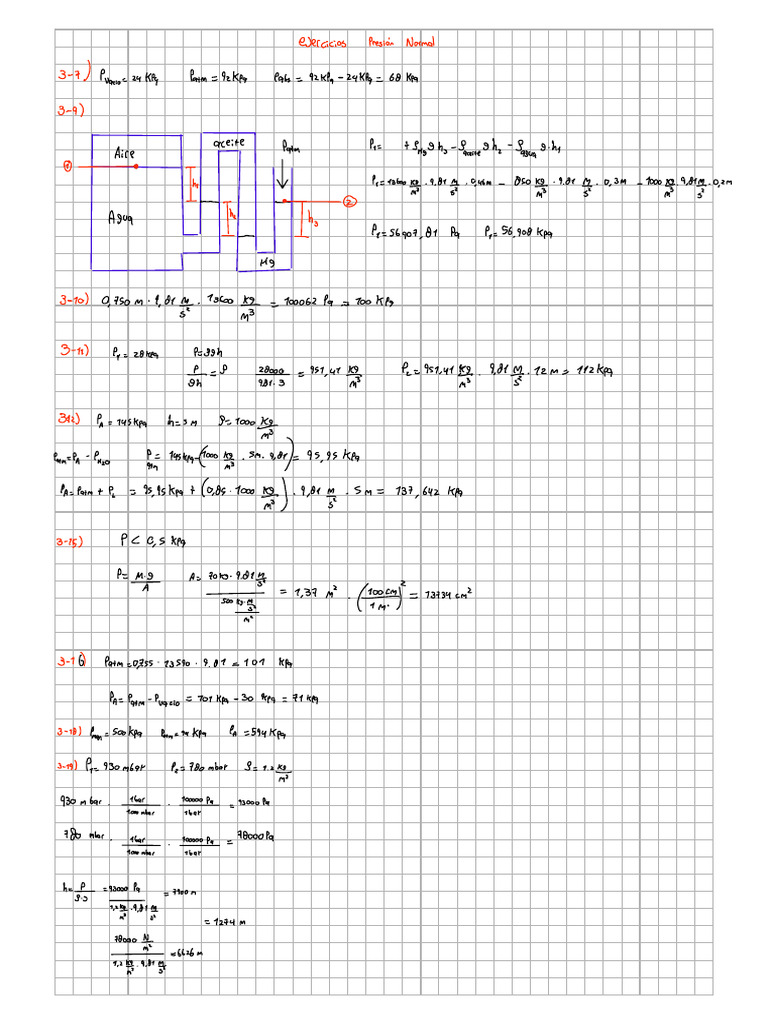 ejercicios Presión Normal
3-7) Pvacio = 24 KPa Patm = 92 KPa Pabs = 92 KPa - 24 KPa = 68 KPa
3-9)
Aire
aceite
Patm
1
h1
h2
h3
2
Agua
Hg
P1= + ρHg g h3 - ρaceite g h2 - ρagua g·h1
P1= 13600 Kg/m³ · 9.81 m/s² · 0,46m - 850 Kg/m³ · 9.81 m/s² · 0,3m - 1000 Kg/m³ · 9.81 m/s² · 0,2m
P1 = 56907,81 Pa P1 = 56,908 KPa
3-10) 0,750 m · 9,81 m/s² · 13600 Kg/m³ = 100062 Pa = 100 KPa
3-11) P1 = 28 KPa P = ρgh
P/gh = ρ 28000/9.81·3 = 951,41 Kg/m³ P2 = 951,41 Kg/m³ · 9,81 m/s² · 12 m = 112 KPa
312) PA = 145 KPa h = 5 m ρ = 1000 Kg/m³
Patm = PA - PH2O Patm = 145 KPa - (1000 Kg/m³ · 5m · 9,81) = 95,95 KPa
PA = Patm + PL = 95,95 KPa + (0,85 · 1000 Kg/m³) · 9,81 m/s² · 5 m = 137,642 KPa
3-15) P < 0,5 KPa
P = M·g/A A = 70 KG · 9.81 m/s² / 500 Kg·m/s²/m² = 1,37 m² · (100 cm/1 m)² = 13734 cm²
3-16) Patm = 0,755 · 13590 · 9.81 = 101 KPa
PA = Patm - Pvacio = 101 KPa - 30 KPa = 71 KPa
3-18) Pman = 500 KPa Patm = 94 KPa PA = 594 KPa
3-19) P1 = 930 mbar P2 = 780 mbar ρ = 1.2 Kg/m³
930 mbar · 1bar/1000 mbar · 100000 Pa/1bar = 93000 Pa
780 mbar · 1bar/1000 mbar · 100000 Pa/1bar = 78000 Pa
h = P/ρ·g = 93000 Pa / 1,2 Kg/m³ · 9,81 m/s² = 7900 m
= 1274 m
78000 N/m² / 1,2 Kg/m³ · 9,81 m/s² = 6626 m